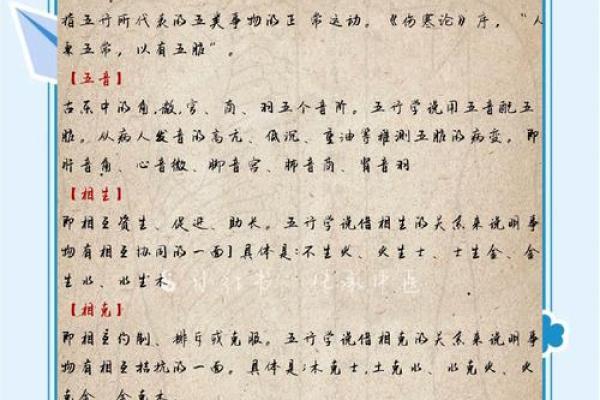 指五行所代表的五类事物的正常运动。《伤寒论》序，“人
禀五常，以有五脏”。
【五音】
古乐中的角,徵,宫、商、羽五个音阶。五行学说用五音配五
脏。从病人发音的高亢、低沉、重浊等推测五脏的病变。即
肝音角、心音徵、脾音宫、肺音商、肾音羽
【相生】
即相互资生、促进、助长。五行学说借相生的关系来说明事
物有相互协同的一面】具体是:木生火、火生土、土生金、金
生水、水生木
【相克】
即相互约制、排斥或克服。五行学说借相克的关系来说明事
物有相互拮抗的一面。具体是:木克土,土克水、水克火、火
克金、金克木